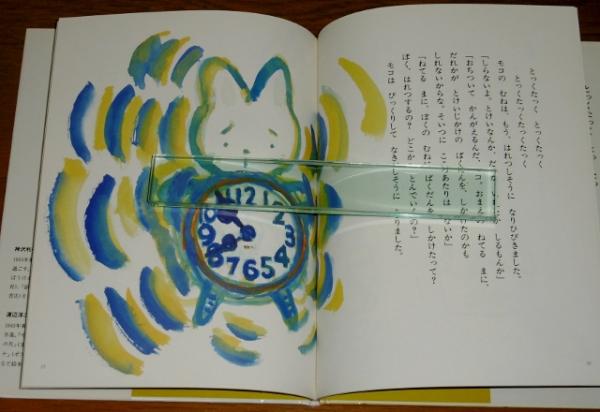 とっくたっく　とっくたっく
とっくたっくたっくたっく
モコの　むねは、もう、はれつしそうに　なりひびきました。
「しらないよ。とけいなんか、だ　　　　しるもんか」
「おちついて　かんがえるんだ、　コ。おまえの　ねてる　まに、
だれかが　とけいじかけの　ばくだんを、しかけたのかも
しれないからな。そいつに　こ　ろあたりは　ないか」
「ねてる　まに、ぼくの　むね　ばくだんを　しかけたって？
ぼく、はれつするの？　どこか　とんでいくの？」
モコは　びっくりして　なきだしそうに　　　ました。
12
1
2
3
4
5
6
7
8
9
10
11
神沢利
渡辺洋